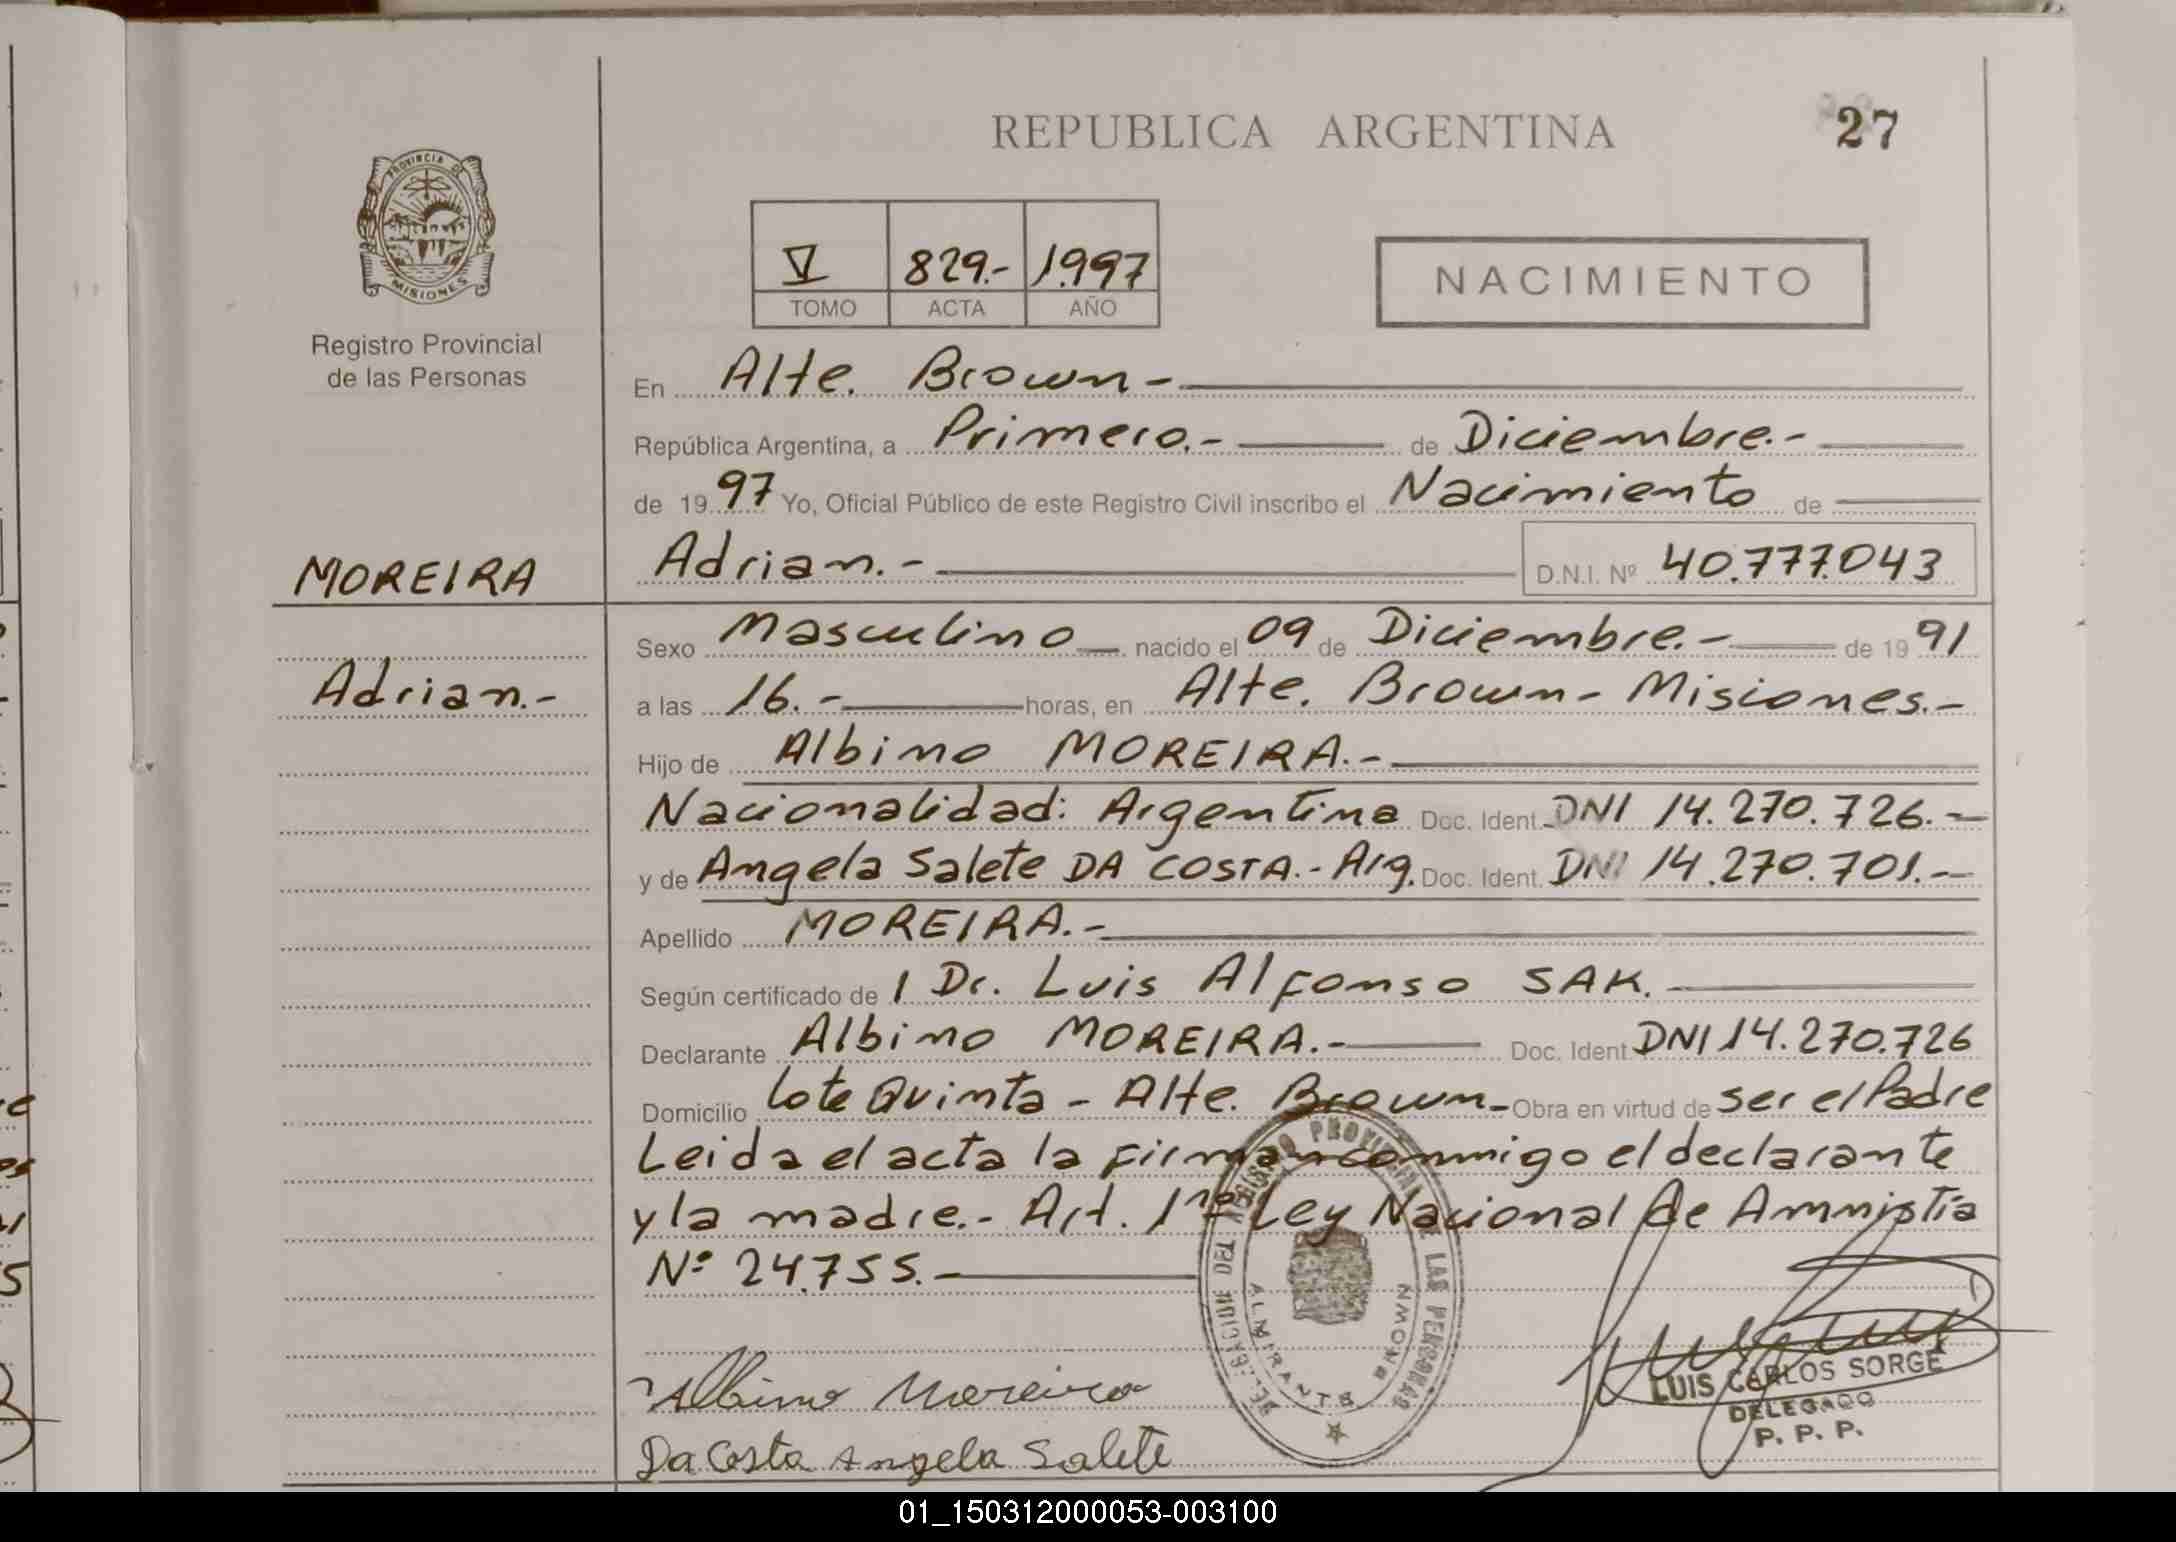 REPUBLICA ARGENTINA
27
PROVINCIA DE
MISIONES
Registro Provincial
de las Personas
V 829.- 1.997
TOMO ACTA AÑO
NACIMIENTO
En Alte. Brown -
República Argentina, a Primero.- de Diciembre.-
de 1997 Yo, Oficial Público de este Registro Civil inscribo el Nacimiento de
MOREIRA
Adrian.- D.N.I. Nº 40.777.043
Sexo Masculino nacido el 09 de Diciembre.- de 1991
Adrian.-
a las 16.- horas, en Alte. Brown - Misiones.-
Hijo de Albino MOREIRA.-
Nacionalidad: Argentina Doc. Ident. DNI 14.270.726.-
y de Angela Salete DA COSTA.- Arg. Doc. Ident. DNI 14.270.701.-
Apellido MOREIRA.-
Según certificado de 1 Dr. Luis Alfonso SAK.
Declarante Albino MOREIRA.- Doc. Ident DNI 14.270.726
Domicilio Lote Quinta - Alte. Brown - Obra en virtud de ser el Padre
Leida el acta la firman conmigo el declarante
y la madre.- Art. 1ro Ley Nacional de Amnistía
Nº 24.755.-
DELEGACION DEL REGISTRO PROVINCIAL DE LAS PERSONAS
ALMIRANTE BROWN
Albino Moreira
Da Costa Angela Salete
LUIS CARLOS SORGE
DELEGADO
P. P. P.
01_150312000053-003100